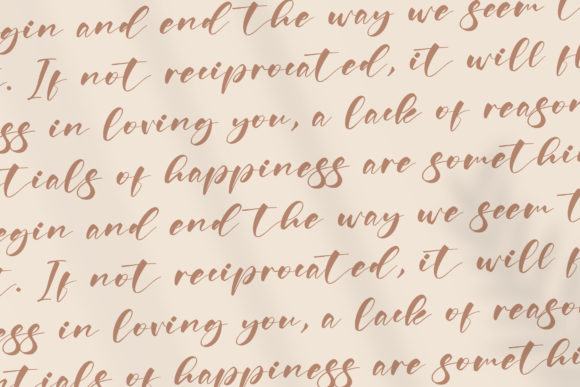 egin and end the way we seem t
t. If not reciprocated, it will f
ess in loving you, a lack of reason
ntials of happiness are somethi
egin and end the way we seem t
t. If not reciprocated, it will f
ess in loving you, a lack of reaso
ntials of happiness are somethi